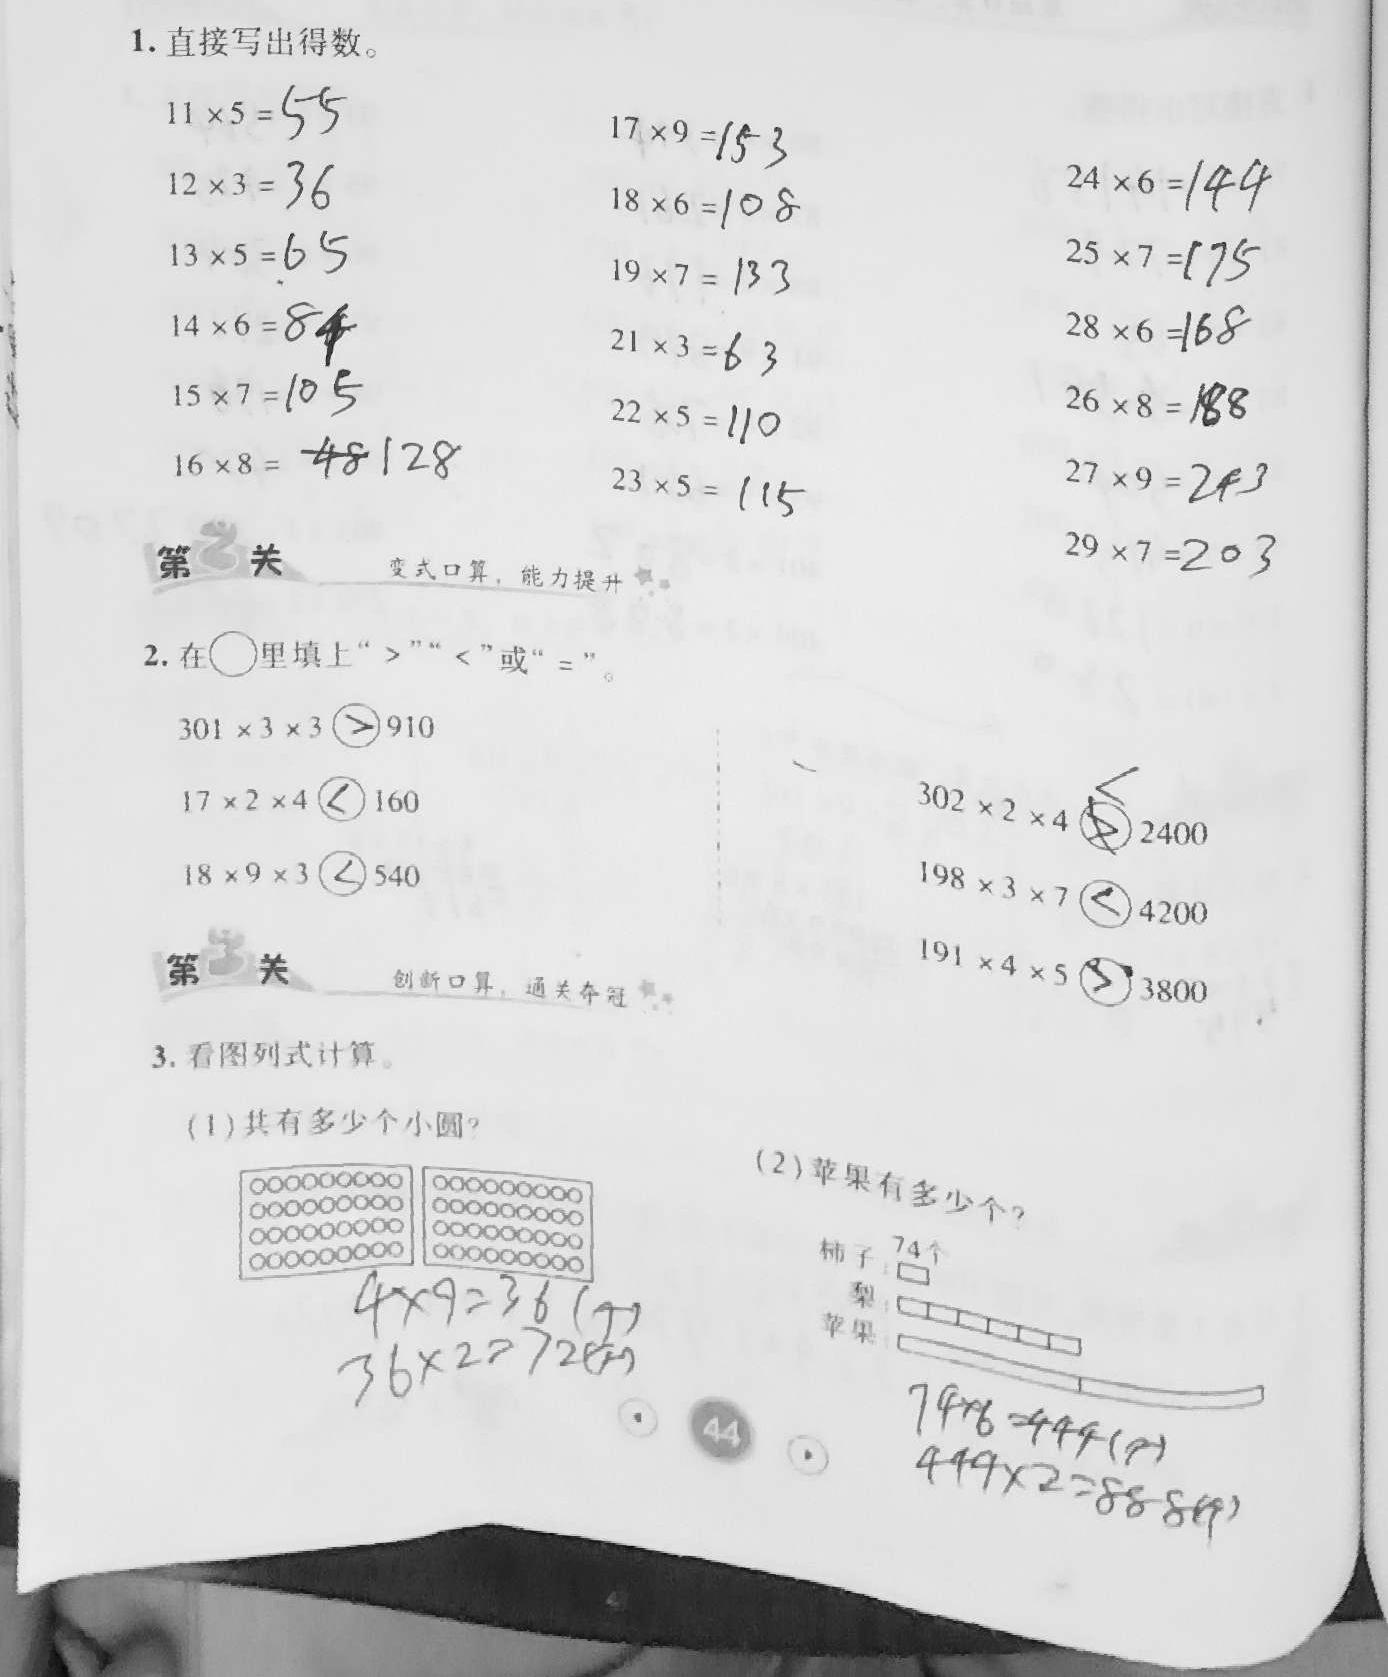 1. 直接写出得数。
11 × 5 = 55
12 × 3 = 36
13 × 5 = 65
14 × 6 = 84
15 × 7 = 105
16 × 8 = 48 128
17 × 9 = 153
18 × 6 = 108
19 × 7 = 133
21 × 3 = 63
22 × 5 = 110
23 × 5 = 115
24 × 6 = 144
25 × 7 = 175
28 × 6 = 168
26 × 8 = 188
27 × 9 = 243
29 × 7 = 203
第2关 变式口算，能力提升
2. 在○里填上“ > ”“ < ”或“ = ”。
301 × 3 × 3 > 910
17 × 2 × 4 < 160
18 × 9 × 3 < 540
302 × 2 × 4 < 2400
198 × 3 × 7 < 4200
191 × 4 × 5 > 3800
第3关 创新口算，通关夺冠
3. 看图列式计算。
(1)共有多少个小圆?
4×9=36(个)
36×2=72(个)
(2)苹果有多少个?
74个
柿子:
梨:
苹果:
74×6=444(个)
444×2=888(个)
44